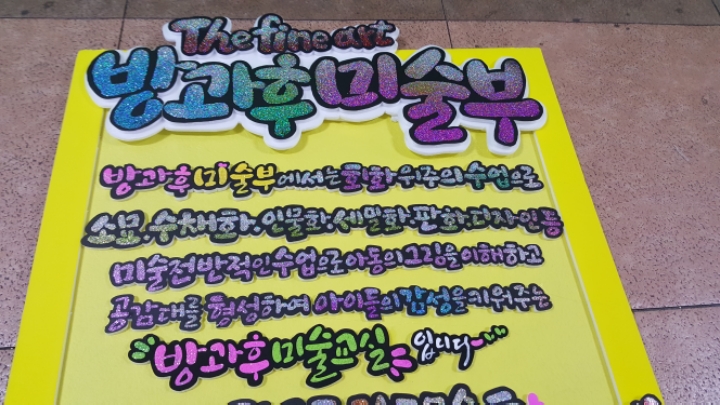 The fine art
방과후미술부
방과후미술부에서는 회화 위주의 수업으로
소묘.수채화.인물화.세밀화.판화.디자인등
미술전반적인수업으로 아동의그림을이해하고
공감대를 형성하여 아이들의감성을키워주는
방과후미술교실 입니다~